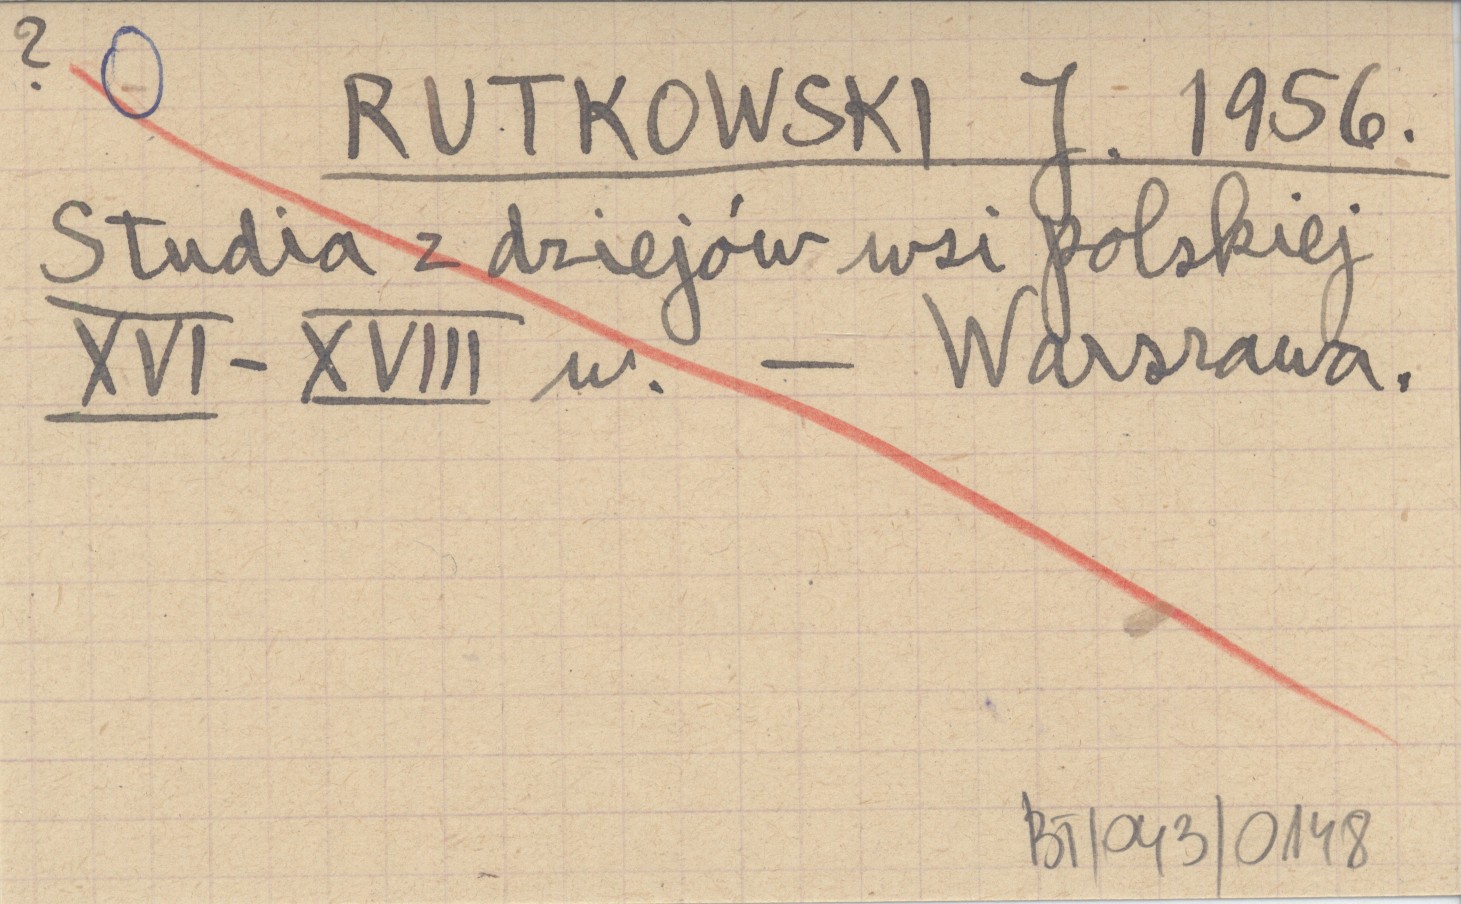 ?
RUTKOWSKI J. 1956.
Studia z dziejów wsi polskiej
XVI - XVIII w. — Warszawa.
BT/043/0148